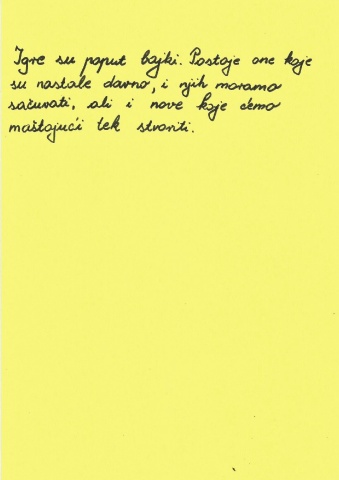 Igre su poput bajki. Postoje one koje
su nastale davno, i njih moramo
sačuvati, ali i nove koje ćemo
maštajući tek stvoriti.